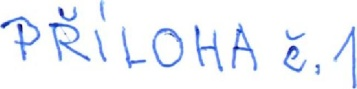 PŘÍLOHA č. 1